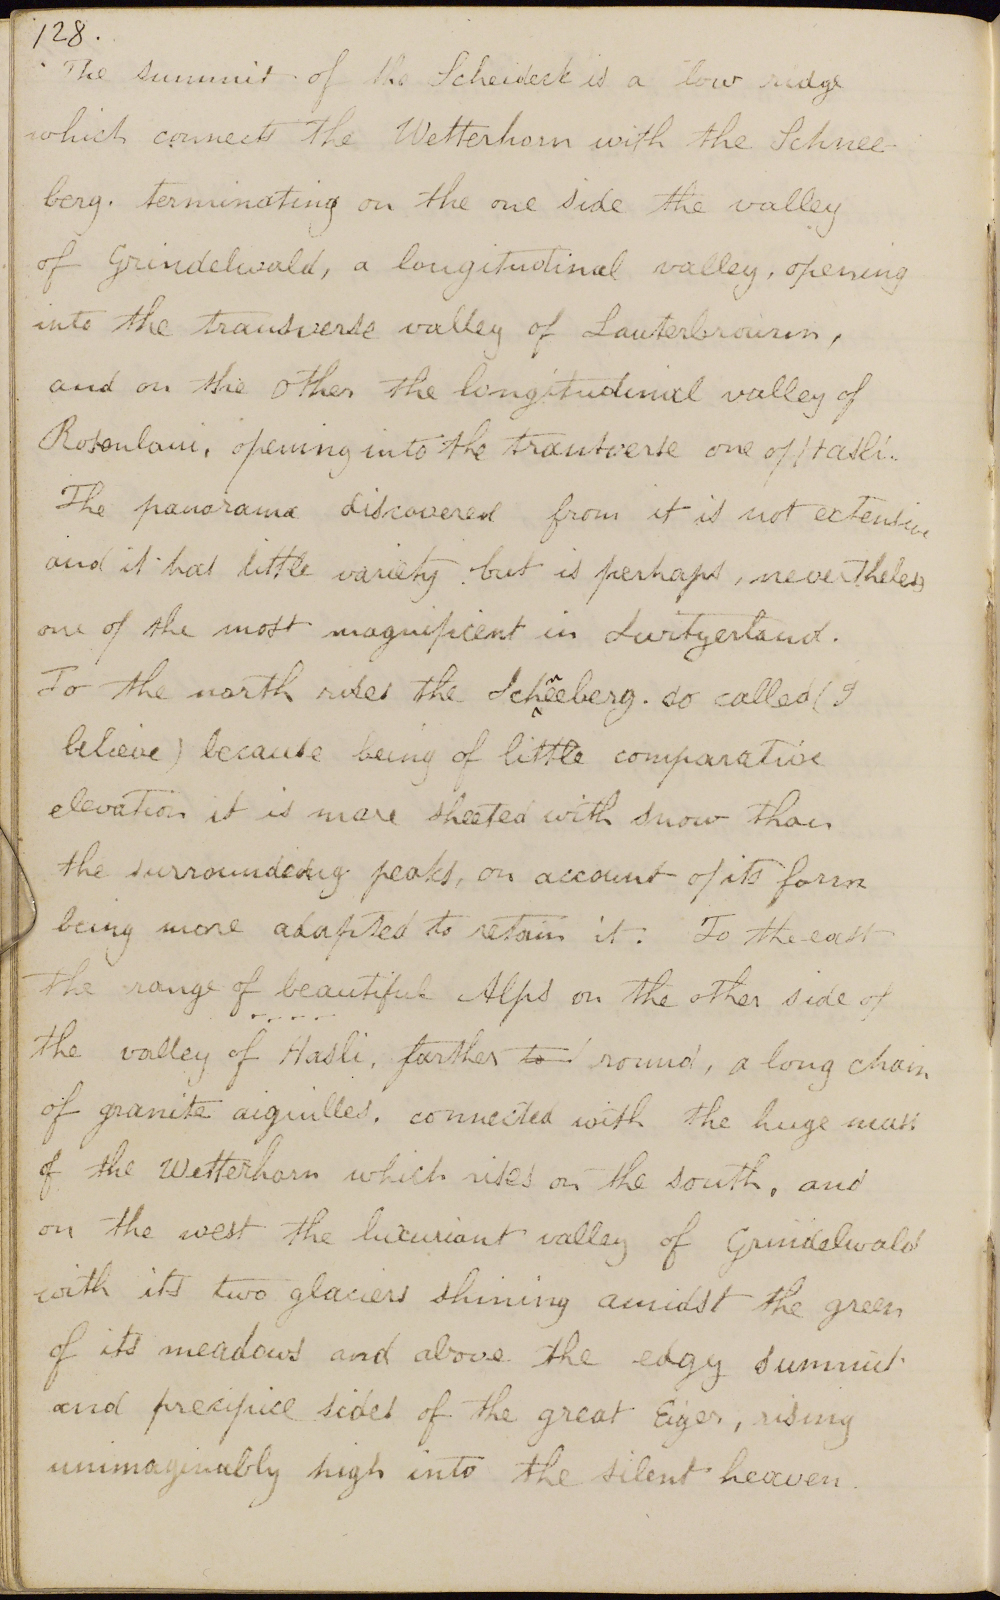 128.
The summit of the Scheideck is a low ridge
which connects the Wetterhorn with the Schnee
berg. terminating on the one side the valley
of Grindelwald, a longitudinal valley, opening
into the transverse valley of Lauterbrounn,
and on the other the longitudinal valley of
Rosenlaui, opening into the transverse one of Hasli.
The panorama discovered from it is not extensive
and it has little variety but is perhaps, nevertheless
one of the most magnificent in Switzerland.
To the north rises the Schneeberg. so called (I
believe) because being of little comparative
elevation it is more sheeted with snow than
the surrounding peaks, on account of its form
being more adapted to retain it. To the east
the range of beautiful Alps on the other side of
the valley of Hasli, farther to round, a long chain
of granite aiguilles. connected with the huge mass
of the Wetterhorn which rises on the south, and
on the west the luxuriant valley of Grindelwald
with its two glaciers shining amidst the green
of its meadows and above the edgy summit
and precipice sides of the great Eiger, rising
unimaginably high into the silent heaven.